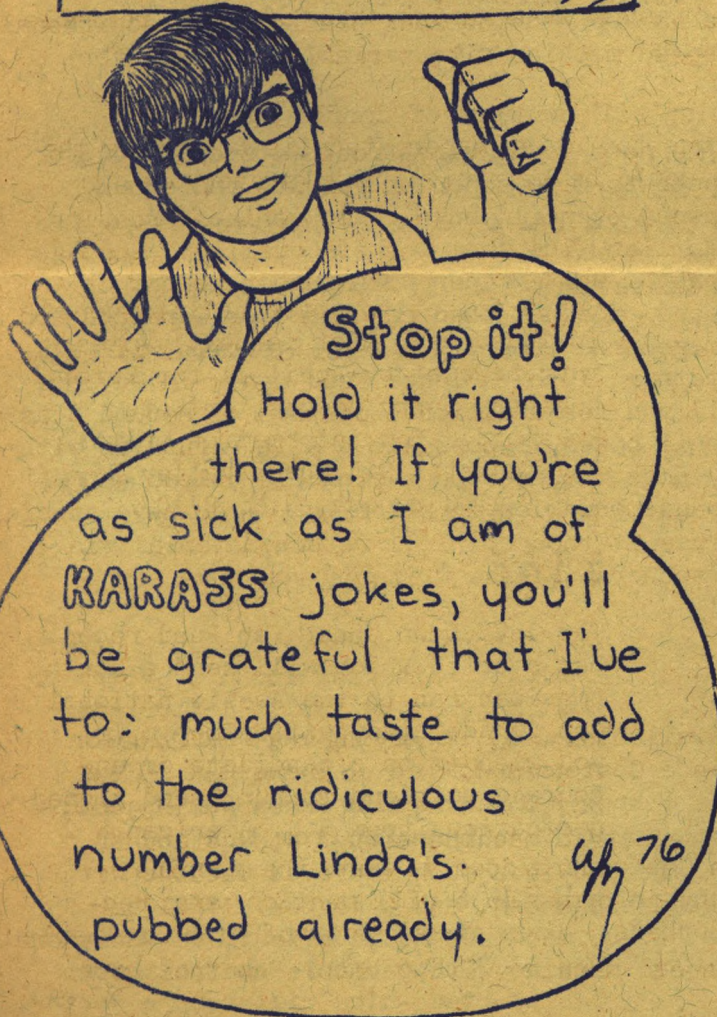 Stop it!
Hold it right
there! If you're
as sick as I am of
KARASS jokes, you'll
be grateful that I've
to: much taste to add
to the ridiculous
number Linda's
pubbed already.
76